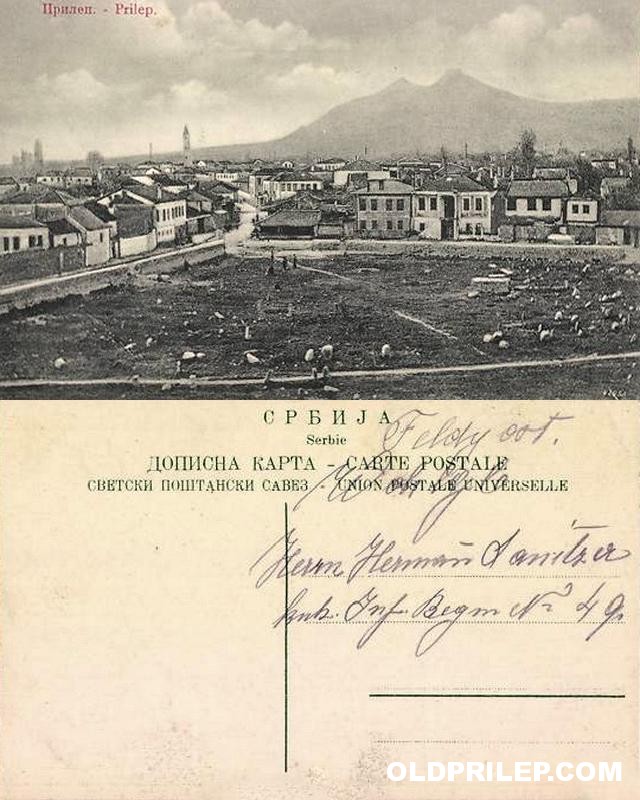 Прилеп. - Prilep.
СРБИЈА
Serbie
ДОПИСНА КАРТА - CARTE POSTALE
СВЕТСКИ ПОШТАНСКИ САВЕЗ - UNION POSTALE UNIVERSELLE
Feldpost.
Herrn Hermann Danitzer
kuk. Inf. Regm No 49.
OLDPRILEP.COM